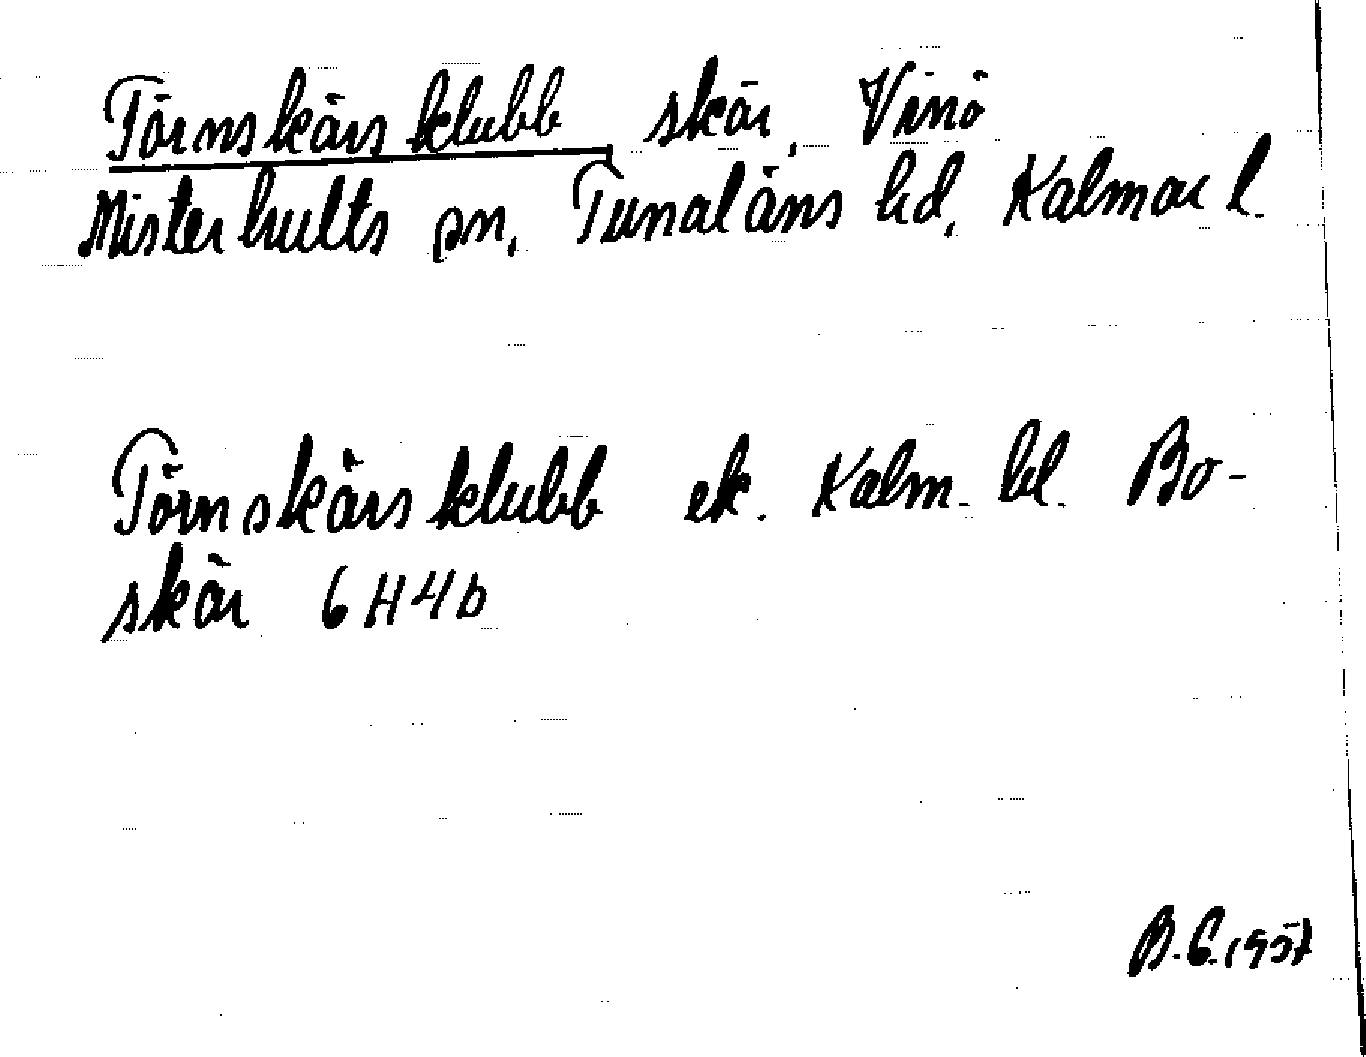 Törnskärsklubb skär, Vinö
Misterhults sn, Tunaläns hd, Kalmar l.
Törnskärsklubb ek. Kalm. bl. Bo-
skär 6H4b
B.G. 1957